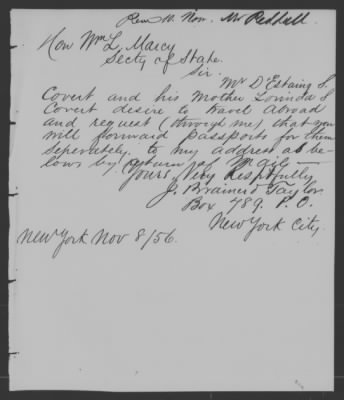 Recd 10. Nov. Mr Reddall
Hon Wm L. Marcy
Secty of State
Sir.
Mr D'Estaing S.
Covert and his Mother Lorinda S
Covert desire to travel Abroad
and request (through me) that you
will forward Passports for them
seperately, to my address as be-
low & by return of Mail –
Yours Very Respctfully
J. Brainerd Taylor
Box 789. P. O.
New York City.
New York Nov 8/56.